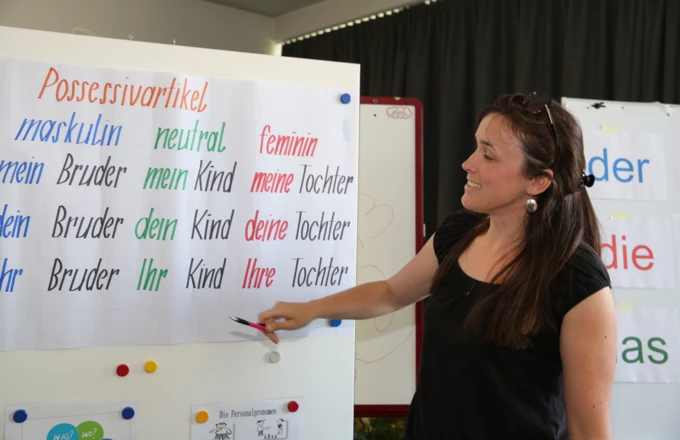 Possessivartikel
maskulin neutral feminin
mein Bruder mein Kind meine Tochter
dein Bruder dein Kind deine Tochter
Ihr Bruder Ihr Kind Ihre Tochter
der
die
das
Was? Wo?
Die Personalpronomen